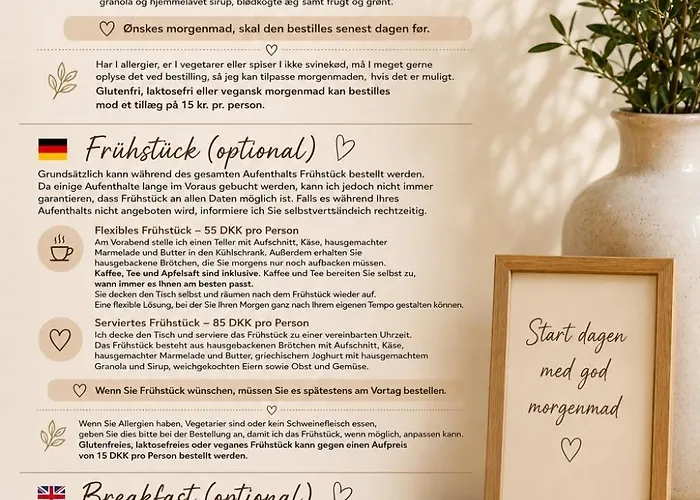 granola og hjemmelavet sirup, blødkogte æg samt frugt og grønt.
Ønskes morgenmad, skal den bestilles senest dagen før.
Har I allergier, er I vegetarer eller spiser I ikke svinekød, må I meget gerne
oplyse det ved bestilling, så jeg kan tilpasse morgenmaden, hvis det er muligt.
Glutenfri, laktosefri eller vegansk morgenmad kan bestilles
mod et tillæg på 15 kr. pr. person.
Frühstück (optional)
Grundsätzlich kann während des gesamten Aufenthalts Frühstück bestellt werden.
Da einige Aufenthalte lange im Voraus gebucht werden, kann ich jedoch nicht immer
garantieren, dass Frühstück an allen Daten möglich ist. Falls es während Ihres
Aufenthalts nicht angeboten wird, informiere ich Sie selbstvertsändeich rechtzeitig.
Flexibles Frühstück – 55 DKK pro Person
Am Vorabend stelle ich einen Teller mit Aufschnitt, Käse, hausgemachter
Marmelade und Butter in den Kühlschrank. Außerdem erhalten Sie
hausgebackene Brötchen, die Sie morgens nur noch aufbacken müssen.
Kaffee, Tee und Apfelsaft sind inklusive. Kaffee und Tee bereiten Sie selbst zu,
wann immer es Ihnen am besten passt.
Sie decken den Tisch selbst und räumen nach dem Frühstück wieder auf.
Eine flexible Lösung, bei der Sie Ihren Morgen ganz nach Ihrem eigenen Tempo gestalten können.
Serviertes Frühstück – 85 DKK pro Person
Ich decke den Tisch und serviere das Frühstück zu einer vereinbarten Uhrzeit.
Das Frühstück besteht aus hausgebackenen Brötchen mit Aufschnitt, Käse,
hausgemachter Marmelade und Butter, griechischem Joghurt mit hausgemachtem
Granola und Sirup, weichgekochten Eiern sowie Obst und Gemüse.
Wenn Sie Frühstück wünschen, müssen Sie es spätestens am Vortag bestellen.
Wenn Sie Allergien haben, Vegetarier sind oder kein Schweinefleisch essen,
geben Sie dies bitte bei der Bestellung an, damit ich das Frühstück, wenn möglich, anpassen kann.
Glutenfreies, laktosefreies oder veganes Frühstück kann gegen einen Aufpreis
von 15 DKK pro Person bestellt werden.
Breakfast (optional)
Start dagen
med god
morgenmad